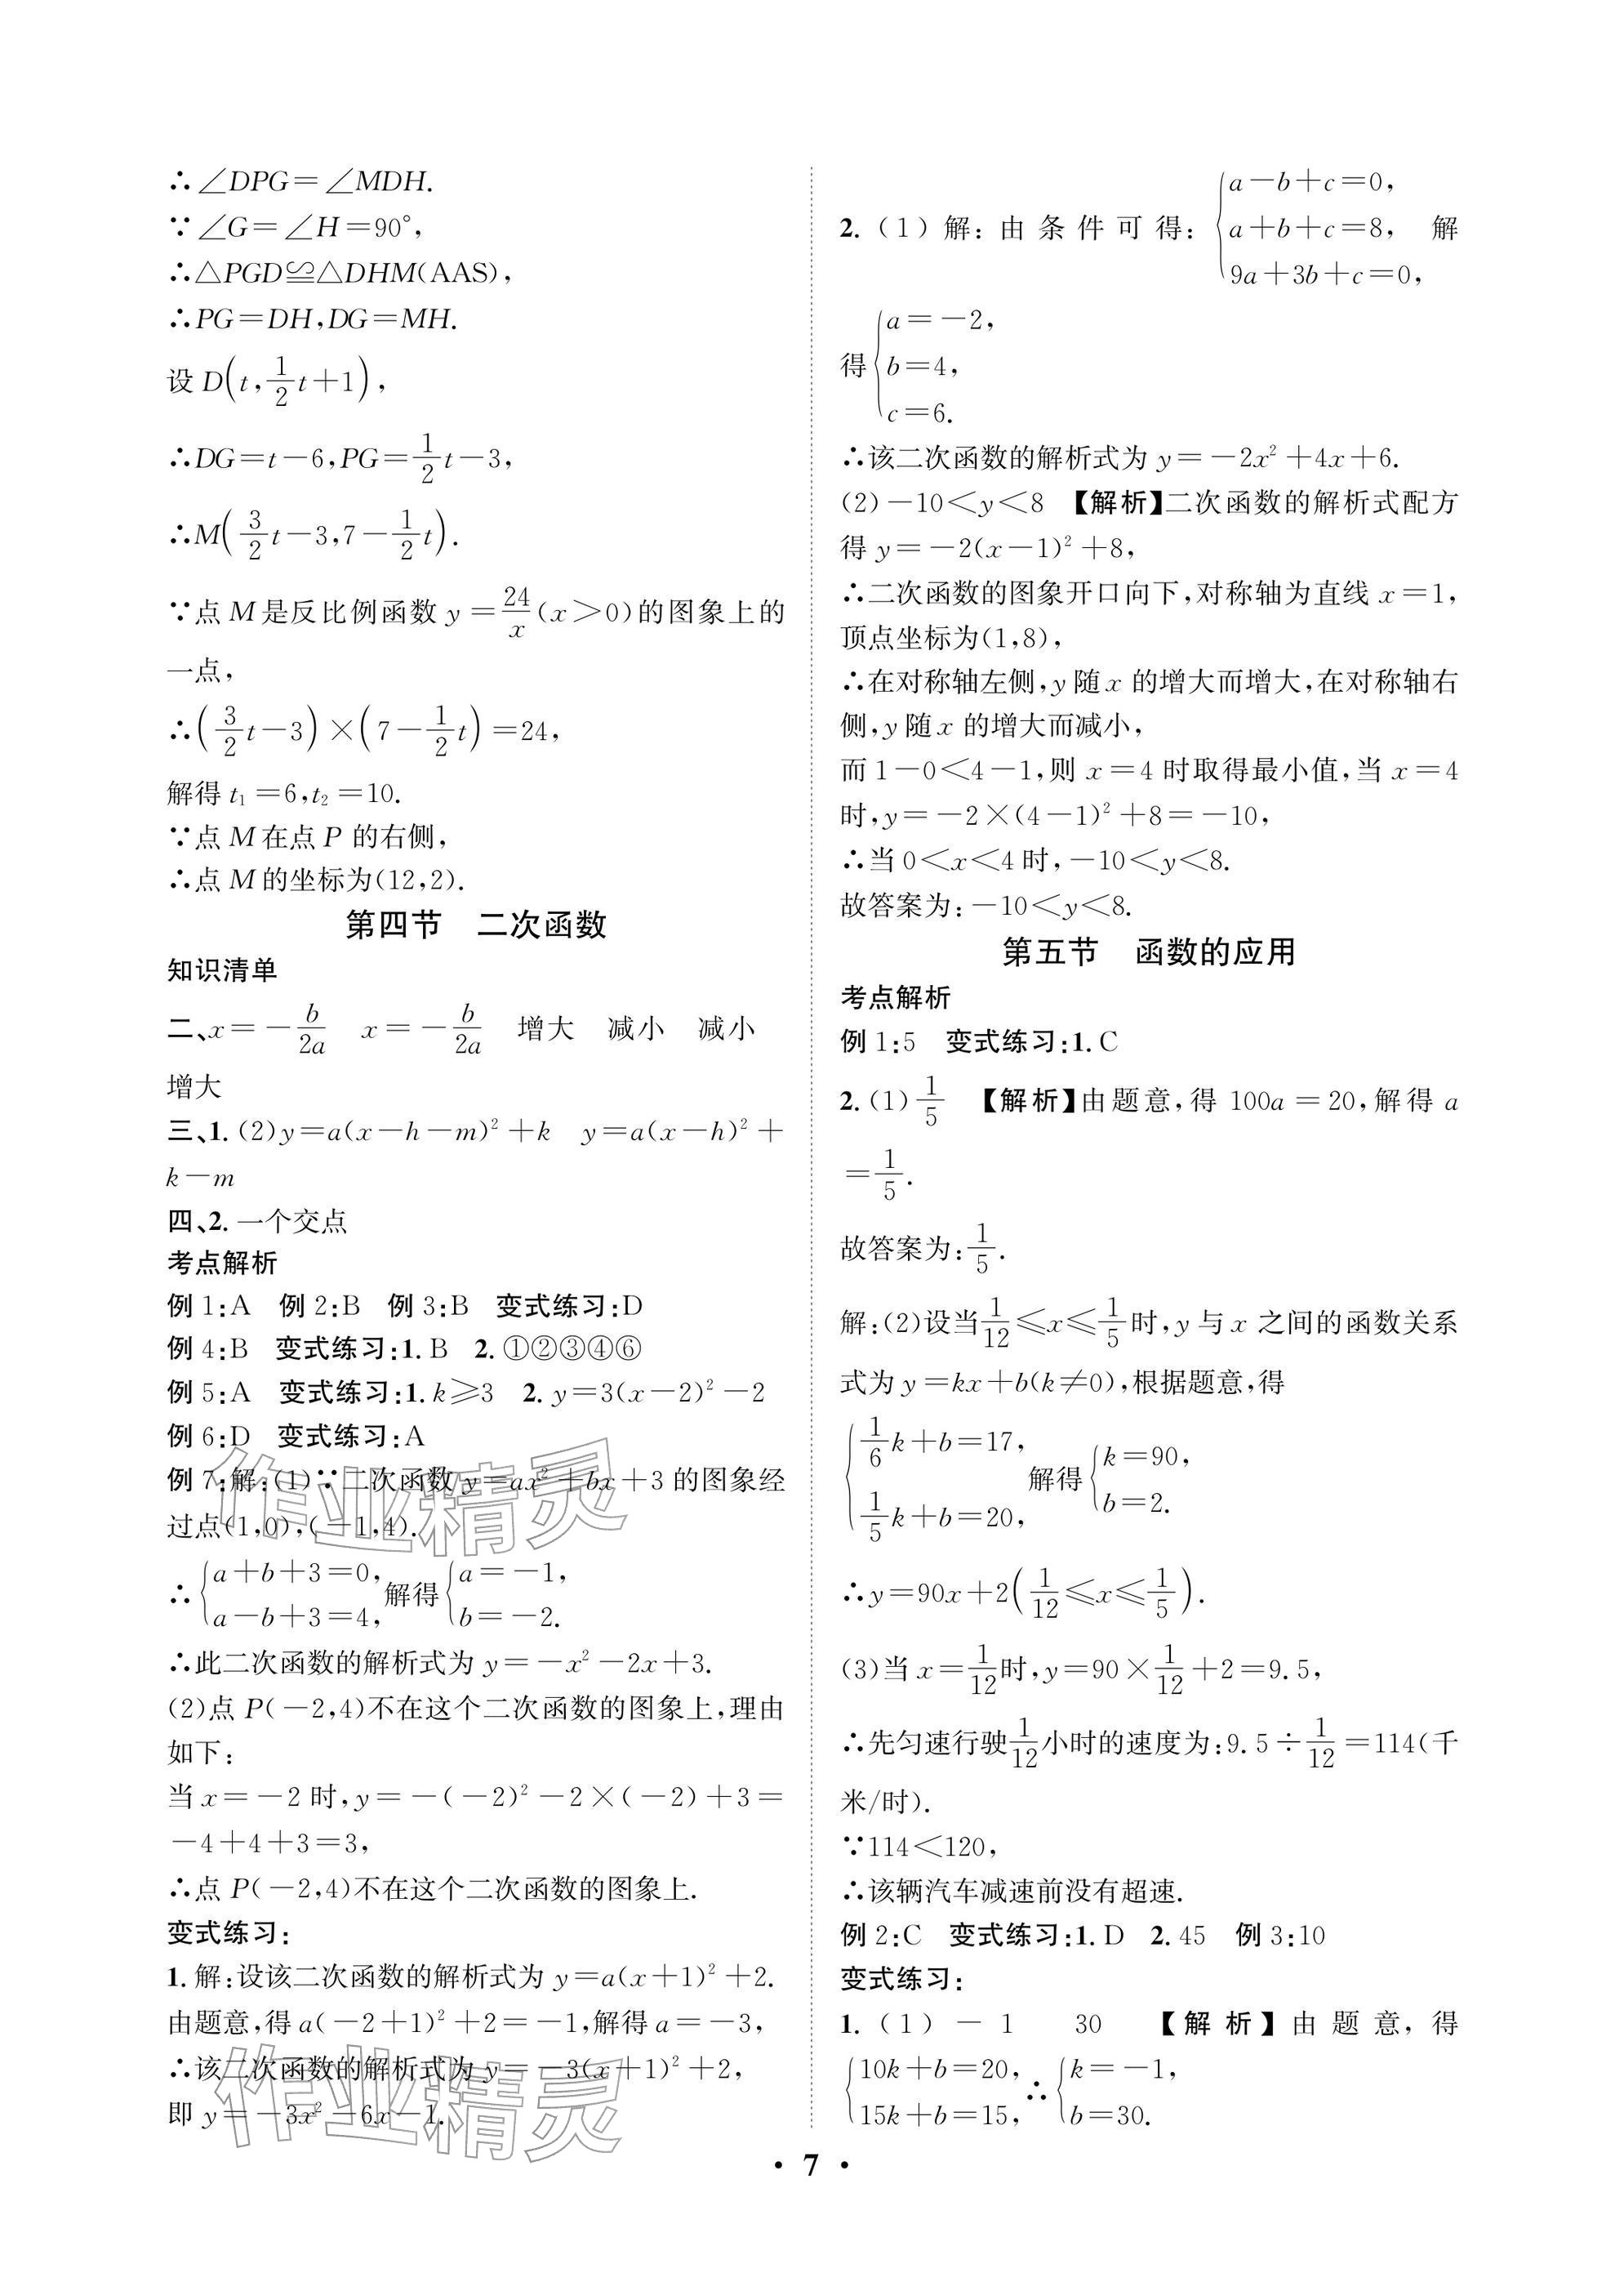 ∴∠DPG=∠MDH.
∵∠G=∠H=90°,
∴△PGD≌△DHM(AAS),
∴PG=DH,DG=MH.
设 D(t,1/2t+1),
∴DG=t-6,PG=1/2t-3,
∴M(3/2t-3,7-1/2t).
∵点 M 是反比例函数 y=24/x(x>0)的图象上的
一点,
∴(3/2t-3)×(7-1/2t)=24,
解得 t₁=6,t₂=10.
∵点 M 在点 P 的右侧,
∴点 M 的坐标为(12,2).
第四节 二次函数
知识清单
二、x=-b/2a x=-b/2a 增大 减小 减小
增大
三、1.(2)y=a(x-h-m)²+k y=a(x-h)²+
k-m
四、2.一个交点
考点解析
例 1:A 例 2:B 例 3:B 变式练习:D
例 4:B 变式练习:1.B 2.①②③④⑥
例 5:A 变式练习:1.k≥3 2.y=3(x-2)²-2
例 6:D 变式练习:A
例 7:解:(1)∵二次函数 y=ax²+bx+3 的图象经
过点(1,0),(-1,4).
∴{a+b+3=0, a-b+3=4, 解得{a=-1, b=-2.
∴此二次函数的解析式为 y=-x²-2x+3.
(2)点 P(-2,4)不在这个二次函数的图象上,理由
如下:
当 x=-2 时,y=-(-2)²-2×(-2)+3=
-4+4+3=3,
∴点 P(-2,4)不在这个二次函数的图象上.
变式练习:
1.解:设该二次函数的解析式为 y=a(x+1)²+2.
由题意,得 a(-2+1)²+2=-1,解得 a=-3,
∴该二次函数的解析式为 y=-3(x+1)²+2,
即 y=-3x²-6x-1.
2.(1)解:由条件可得:{a-b+c=0, a+b+c=8, 9a+3b+c=0, 解
得{a=-2, b=4, c=6.
∴该二次函数的解析式为 y=-2x²+4x+6.
(2)-10<y<8 【解析】二次函数的解析式配方
得 y=-2(x-1)²+8,
∴二次函数的图象开口向下,对称轴为直线 x=1,
顶点坐标为(1,8),
∴在对称轴左侧,y 随 x 的增大而增大,在对称轴右
侧,y 随 x 的增大而减小,
而 1-0<4-1,则 x=4 时取得最小值,当 x=4
时,y=-2×(4-1)²+8=-10,
∴当 0<x<4 时,-10<y<8.
故答案为:-10<y<8.
第五节 函数的应用
考点解析
例 1:5 变式练习:1.C
2.(1)1/5 【解析】由题意,得 100a=20,解得 a
=1/5.
故答案为:1/5.
解:(2)设当1/12≤x≤1/5时,y 与 x 之间的函数关系
式为 y=kx+b(k≠0),根据题意,得
{1/6k+b=17, 1/5k+b=20, 解得{k=90, b=2.
∴y=90x+2(1/12≤x≤1/5).
(3)当 x=1/12时,y=90×1/12+2=9.5,
∴先匀速行驶1/12小时的速度为:9.5÷1/12=114(千
米/时).
∵114<120,
∴该辆汽车减速前没有超速.
例 2:C 变式练习:1.D 2.45 例 3:10
变式练习:
1.(1)-1 30 【解析】由题意,得
{10k+b=20, 15k+b=15, ∴{k=-1, b=30.
作业精灵
作业精灵
• 7 •